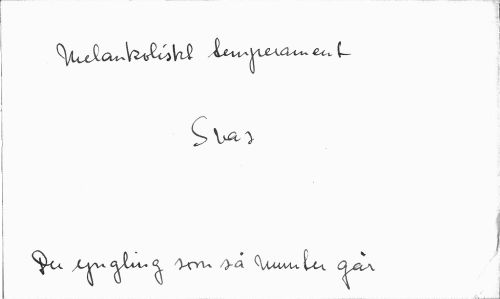 Melankoliskt temperament
Svas
Du yngling som så munter går